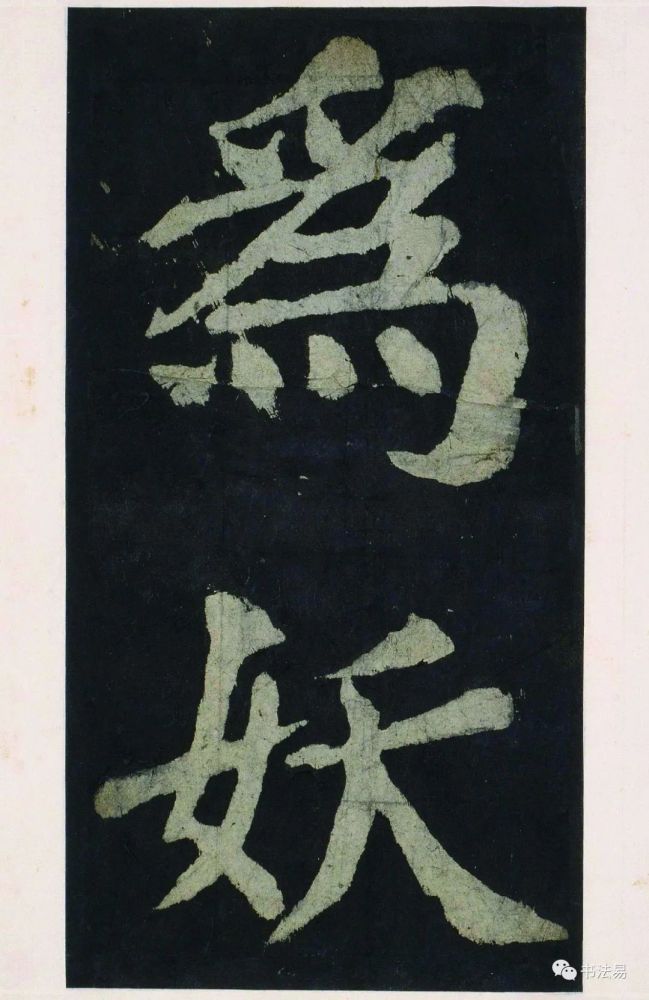 爲
妖
书法易